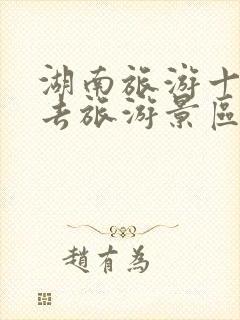 湖南旅游十
去旅游景區
趙有為